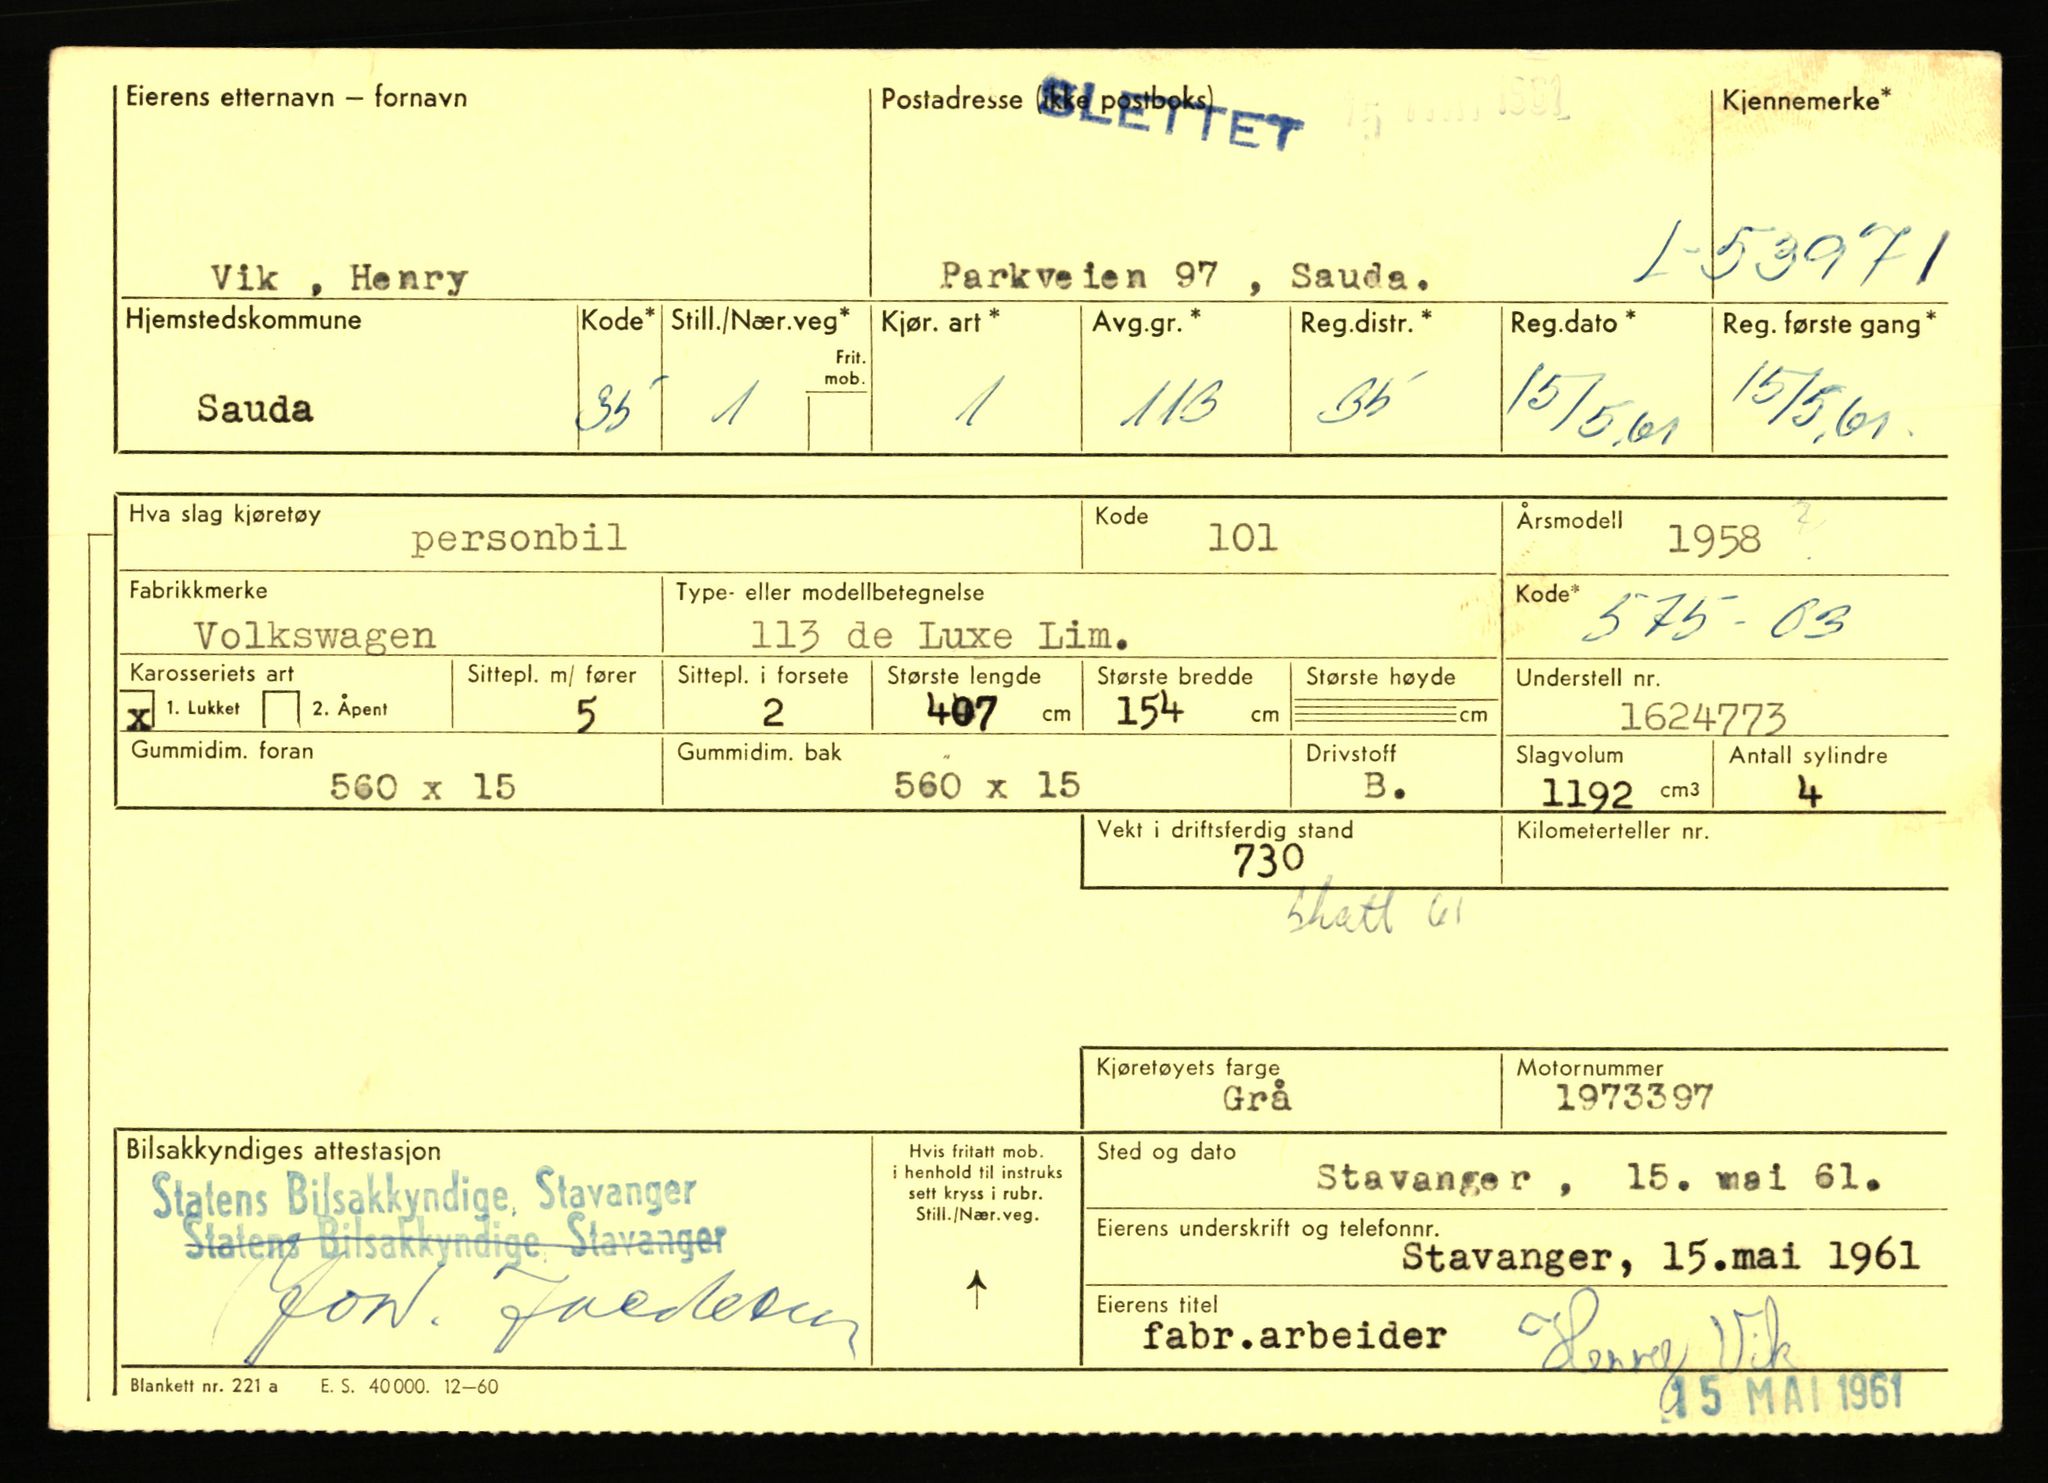 Eierens etternavn – fornavn
Postadresse (ikke postboks)
SLETTET
Kjennemerke*
Vik , Henry
Parkveien 97 , Sauda.
L-53971
Hjemstedskommune
Kode*
Still./Nær.veg*
Kjør. art*
Avg.gr.*
Reg.distr.*
Reg.dato*
Reg. første gang*
Frit. mob.
Sauda
35
1
1
113
35
15/5.61
15/5.61.
Hva slag kjøretøy
personbil
Kode
101
Årsmodell
1958
Fabrikkmerke
Volkswagen
Type- eller modellbetegnelse
113 de Luxe Lim.
Kode*
575-03
Karosseriets art
x 1. Lukket 2. Åpent
Sittepl. m/ fører
5
Sittepl. i forsete
2
Største lengde
407 cm
Største bredde
154 cm
Største høyde
cm
Understell nr.
1624773
Gummidim. foran
560 x 15
Gummidim. bak
560 x 15
Drivstoff
B.
Slagvolum
1192 cm3
Antall sylindre
4
Vekt i driftsferdig stand
730
Kilometerteller nr.
skatt 61
Kjøretøyets farge
Grå
Motornummer
1973397
Bilsakkyndiges attestasjon
Statens Bilsakkyndige, Stavanger
Statens Bilsakkyndige, Stavanger
Hvis fritatt mob.
i henhold til instruks
sett kryss i rubr.
Still./Nær.veg.
Sted og dato
Stavanger , 15. mai 61.
Eierens underskrift og telefonnr.
Stavanger, 15.mai 1961
Eierens titel
fabr.arbeider
Henry Vik
15 MAI 1961
Blankett nr. 221 a E. S. 40 000. 12–60